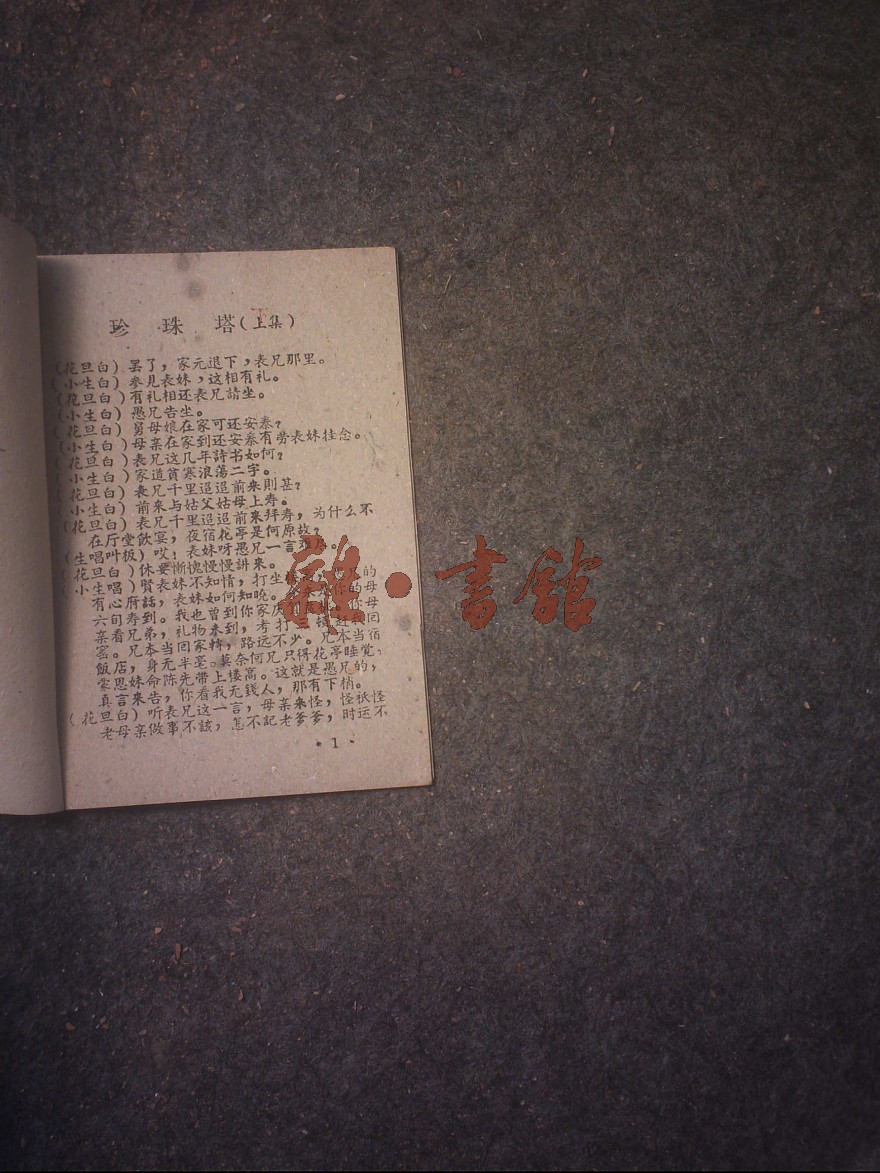 珍珠塔(上集)
下
(花旦白)罢了，家元退下，表兄那里。
(小生白)参見表妹，这相有礼。
(花旦白)有礼相还表兄請坐。
(小生白)愚兄告坐。
(花旦白)舅母娘在家可还安泰？
(小生白)母亲在家到还安泰有劳表妹挂念。
(花旦白)表兄这几年詩书如何？
(小生白)家道貧寒浪荡二字。
(花旦白)表兄千里迢迢前来則甚？
(小生白)前来与姑父姑母上寿。
(花旦白)表兄千里迢迢前来拜寿，为什么不
在厅堂飲宴，夜宿花亭是何原故？
(生唱叶板)哎！表妹呀愚兄一言难尽。
(花旦白)休要惭愧慢慢讲来。
(小生唱)賢表妹不知情，打坐 的
有心腑話，表妹如何知晚。 你的母
六旬寿到。我也曾到你家庆 你母
亲看兄弟，礼物未到，考打三 赶我回
窑。兄本当回家轉，路远不少。兄本当宿
飯店，身无半毫。莫奈何兄只得花亭睡觉，
蒙恩妹命陈先带上楼高。这就是愚兄的，
真言来告，你看我无錢人，那有下梢。
(花旦白)听表兄这一言，母亲来怪，怪祇怪
老母亲做事不該，怎不記老爹爹，时运不
·1·
雜·書館